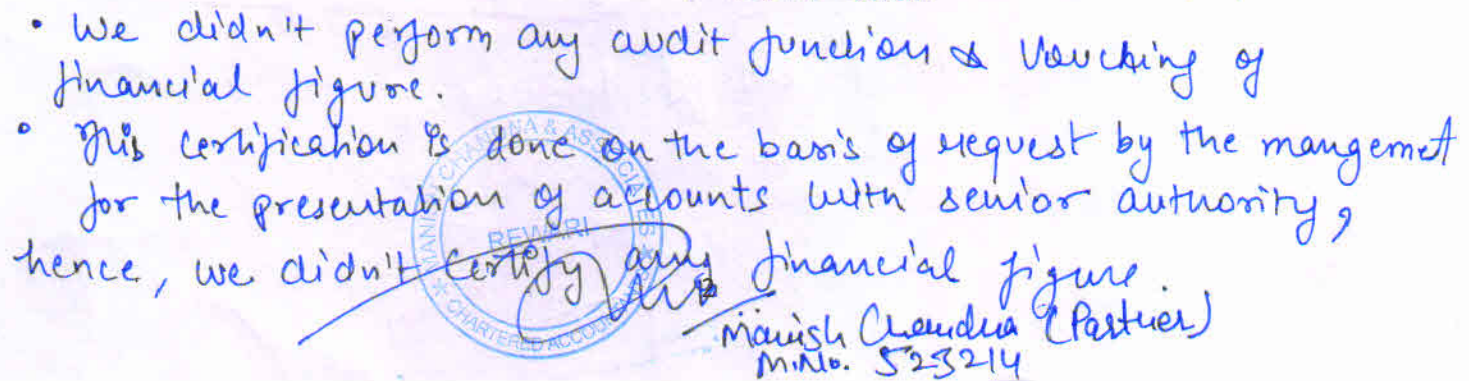 • We didn't perform any audit function & Vouching of
financial figure.
• This certification is done on the basis of request by the mangemet
for the presentation of accounts with senior authority,
hence, we didn't certify any financial figure.
MANISH CHANDNA & ASSOCIATES
REWARI
* CHARTERED ACCOUNTANTS *
Manish Chandna (Partner)
M.No. 523214